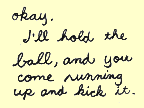 okay.
I'll hold the
ball, and you
come running
up and kick it.